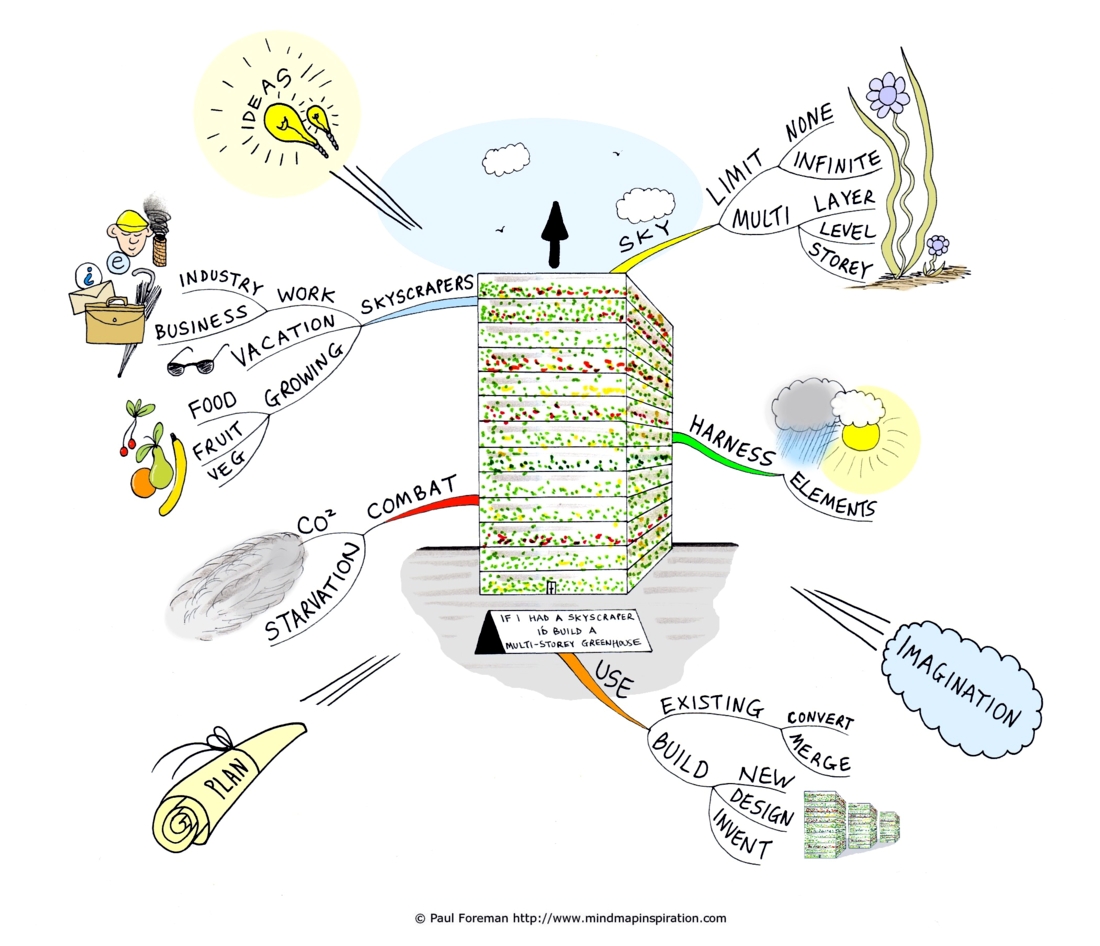 IDEAS
SKY
LIMIT
NONE
INFINITE
MULTI
LAYER
LEVEL
STOREY
SKYSCRAPERS
WORK
INDUSTRY
BUSINESS
VACATION
GROWING
FOOD
FRUIT
VEG
i
e
HARNESS
ELEMENTS
COMBAT
CO²
STARVATION
IF I HAD A SKYSCRAPER
I'D BUILD A
MULTI-STOREY GREENHOUSE
USE
EXISTING
CONVERT
MERGE
BUILD
NEW
DESIGN
INVENT
IMAGINATION
PLAN
© Paul Foreman http://www.mindmapinspiration.com